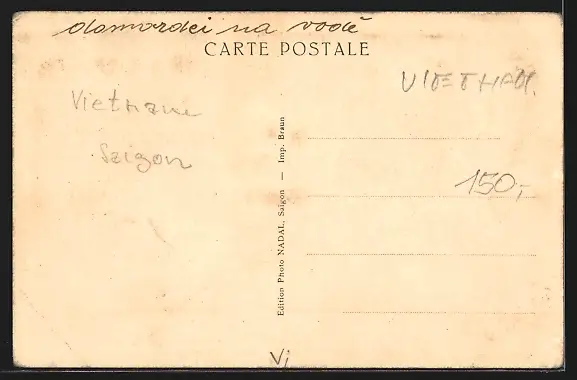 domorodci na vodě
CARTE POSTALE
VIETNAM.
Vietnam
Saigon
150,-
Edition Photo NADAL, Saigon — Imp. Braun
Vi